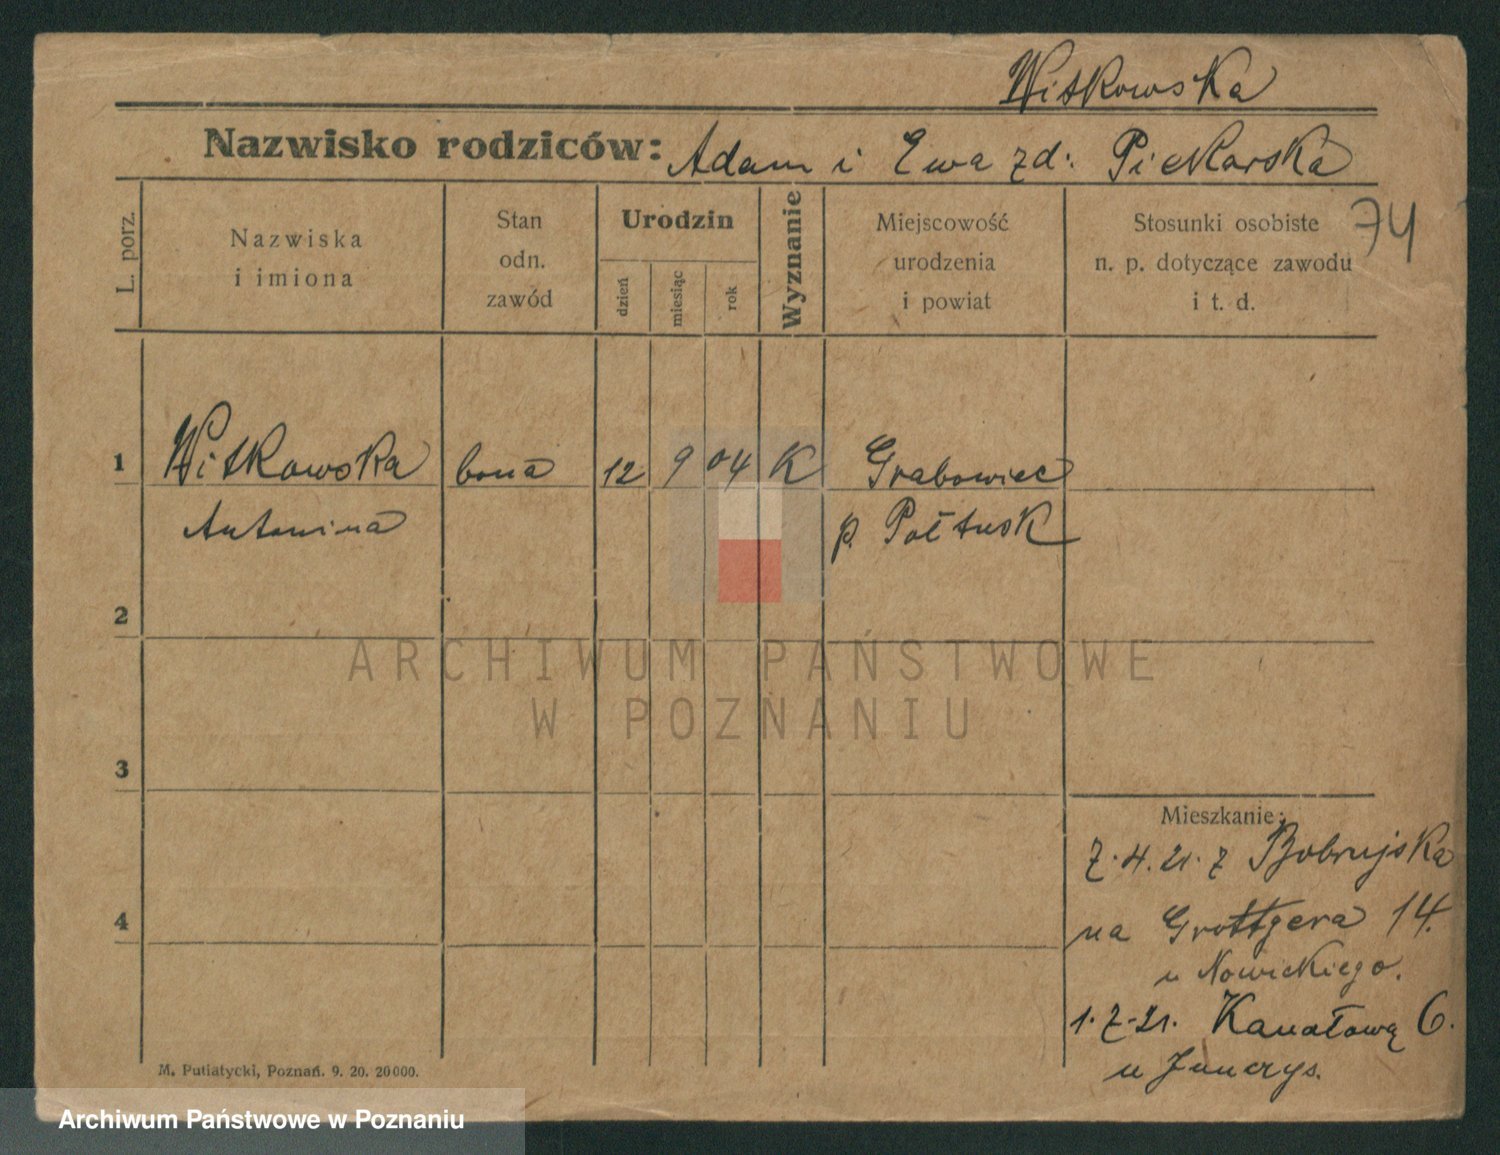 Witkowska
Nazwisko rodziców: Adam i Ewa zd: Piekarska
74
L. porz.
Nazwiska
i imiona
Stan
odn.
zawód
Urodzin
dzień
miesiąc
rok
Wyznanie
Miejscowość
urodzenia
i powiat
Stosunki osobiste
n. p. dotyczące zawodu
i t. d.
1 Witkowska bona 12 9 04 K Grabowiec
Antonina p. Połtusk
2
3
4
Mieszkanie:
7.4.21. z Bobrujska
na Grottgera 14.
u Nowickiego.
1.7-21. Kanałową 6.
u
M. Putiatycki, Poznań. 9. 20. 20000.
ARCHIWUM PAŃSTWOWE
W POZNANIU
Archiwum Państwowe w Poznaniu